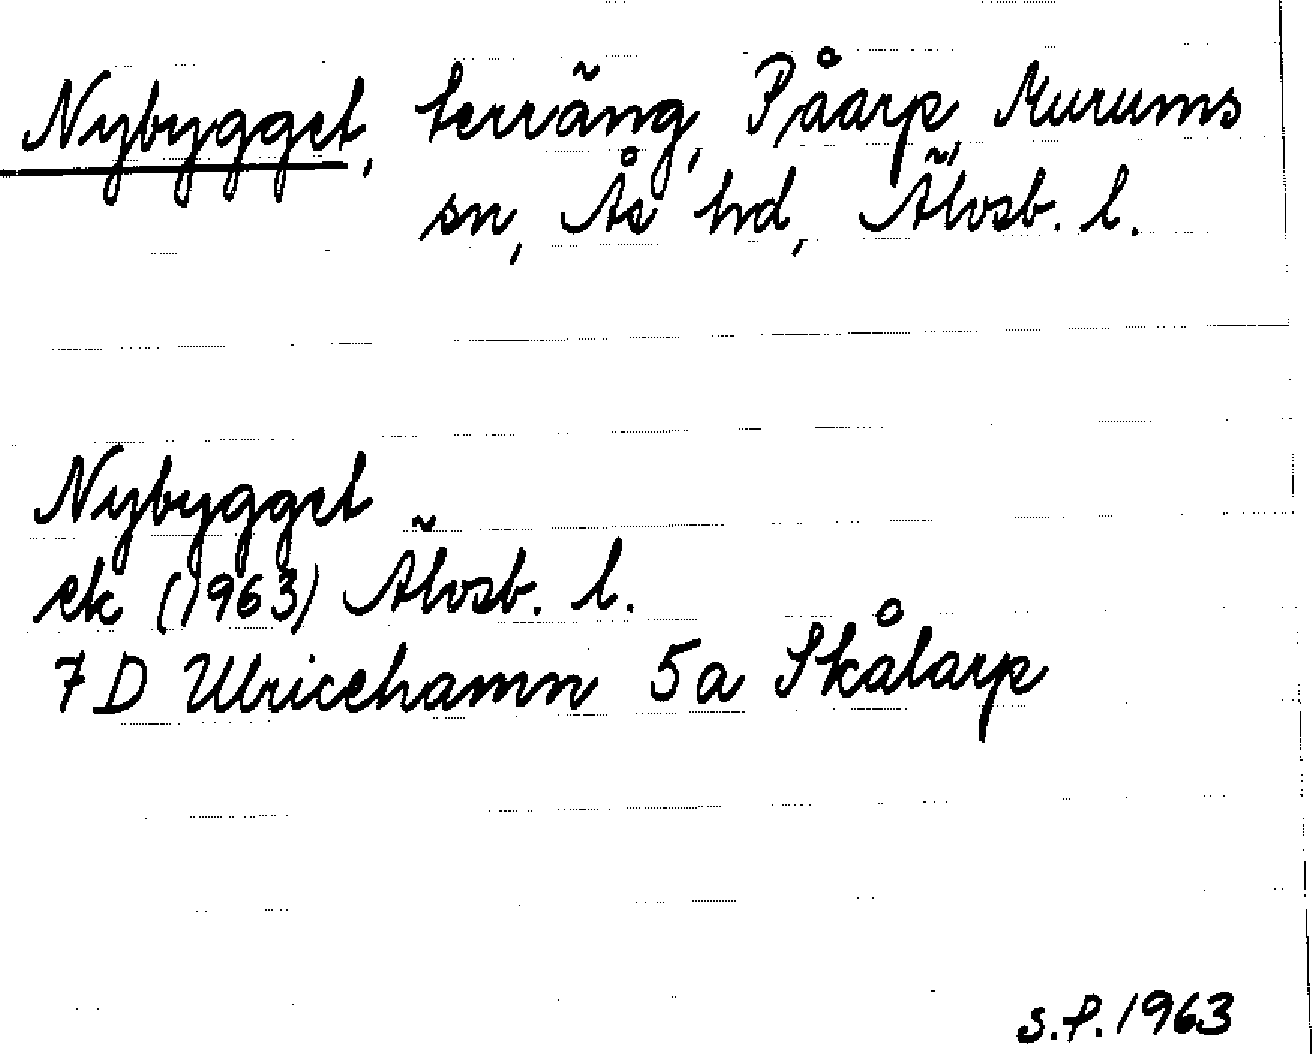 Nybygget, terräng, Påarp, Murums
sn, Ås hd, Älvsb. l.
Nybygget
ek (1963) Älvsb. l.
7 D Ulricehamn 5a Skålarp
S.P. 1963